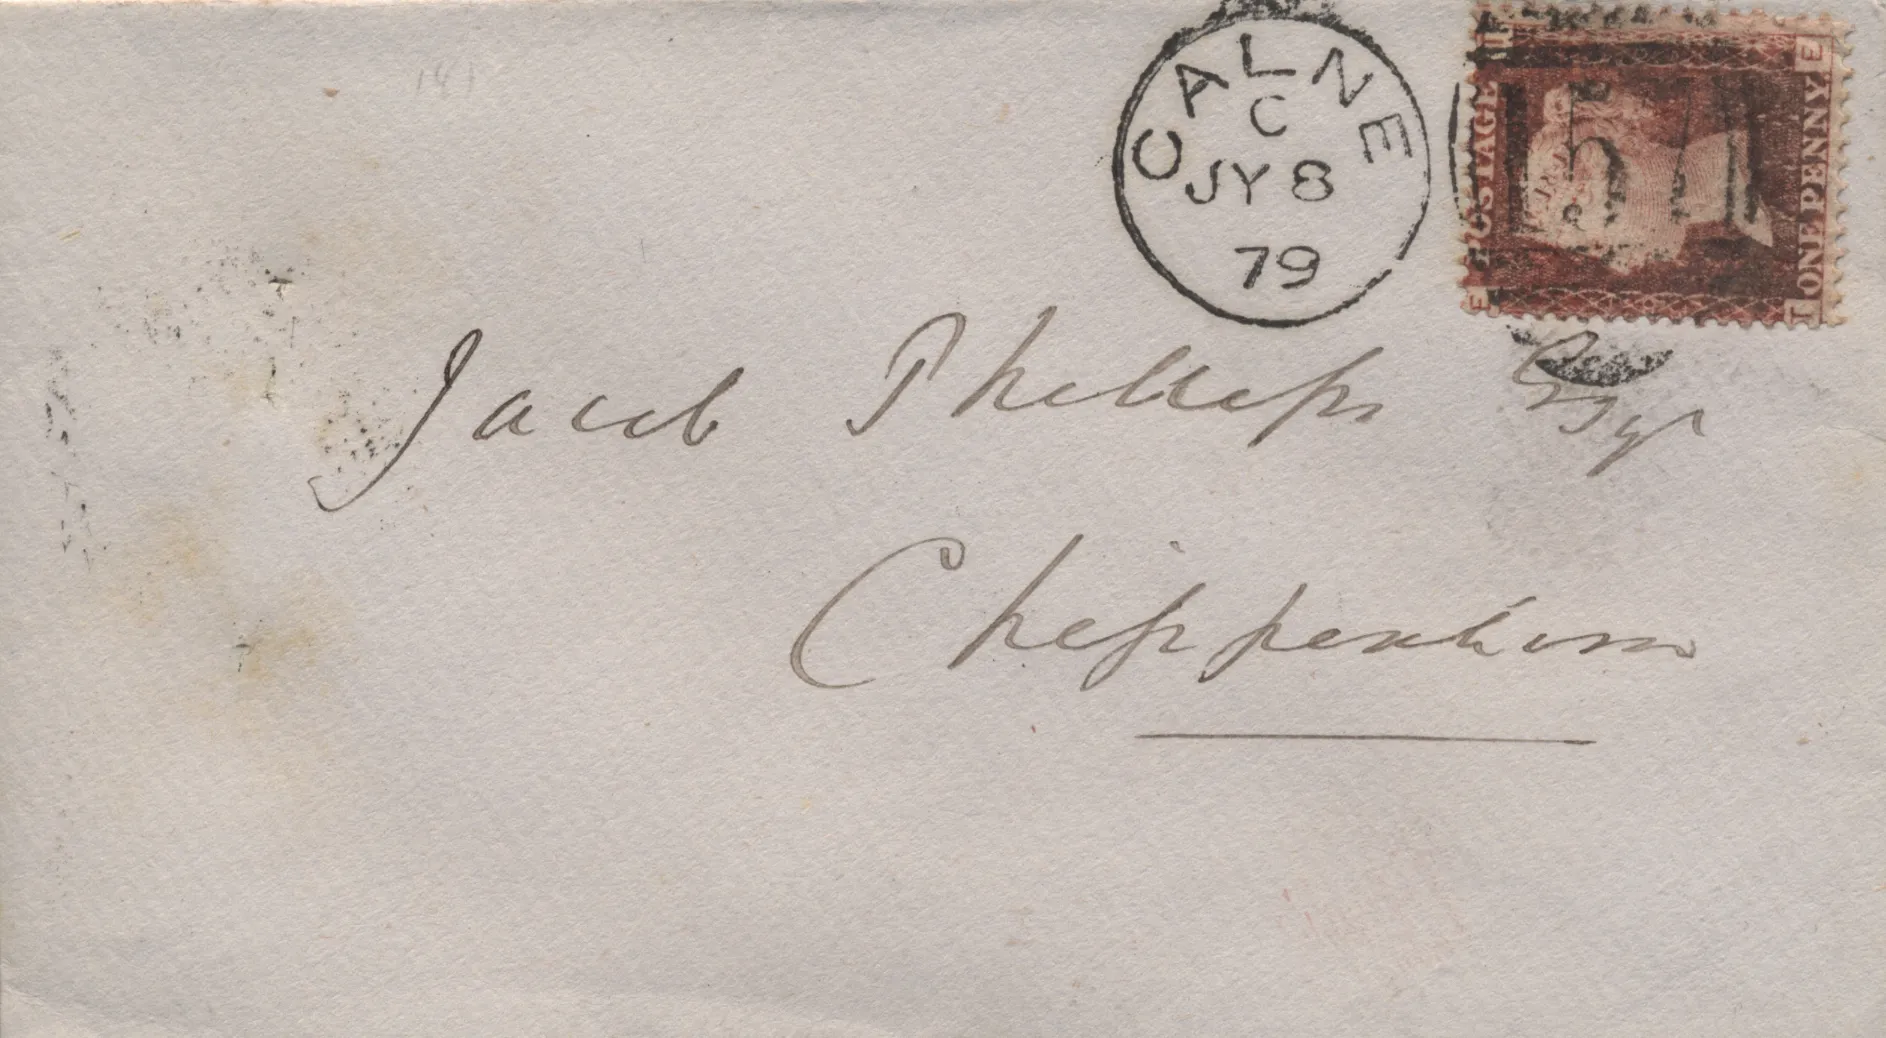 CALNE
C
JY 8
79
POSTAGE
ONE PENNY
E
T
T
E
Jacob Phillips Esqr
Chippenham